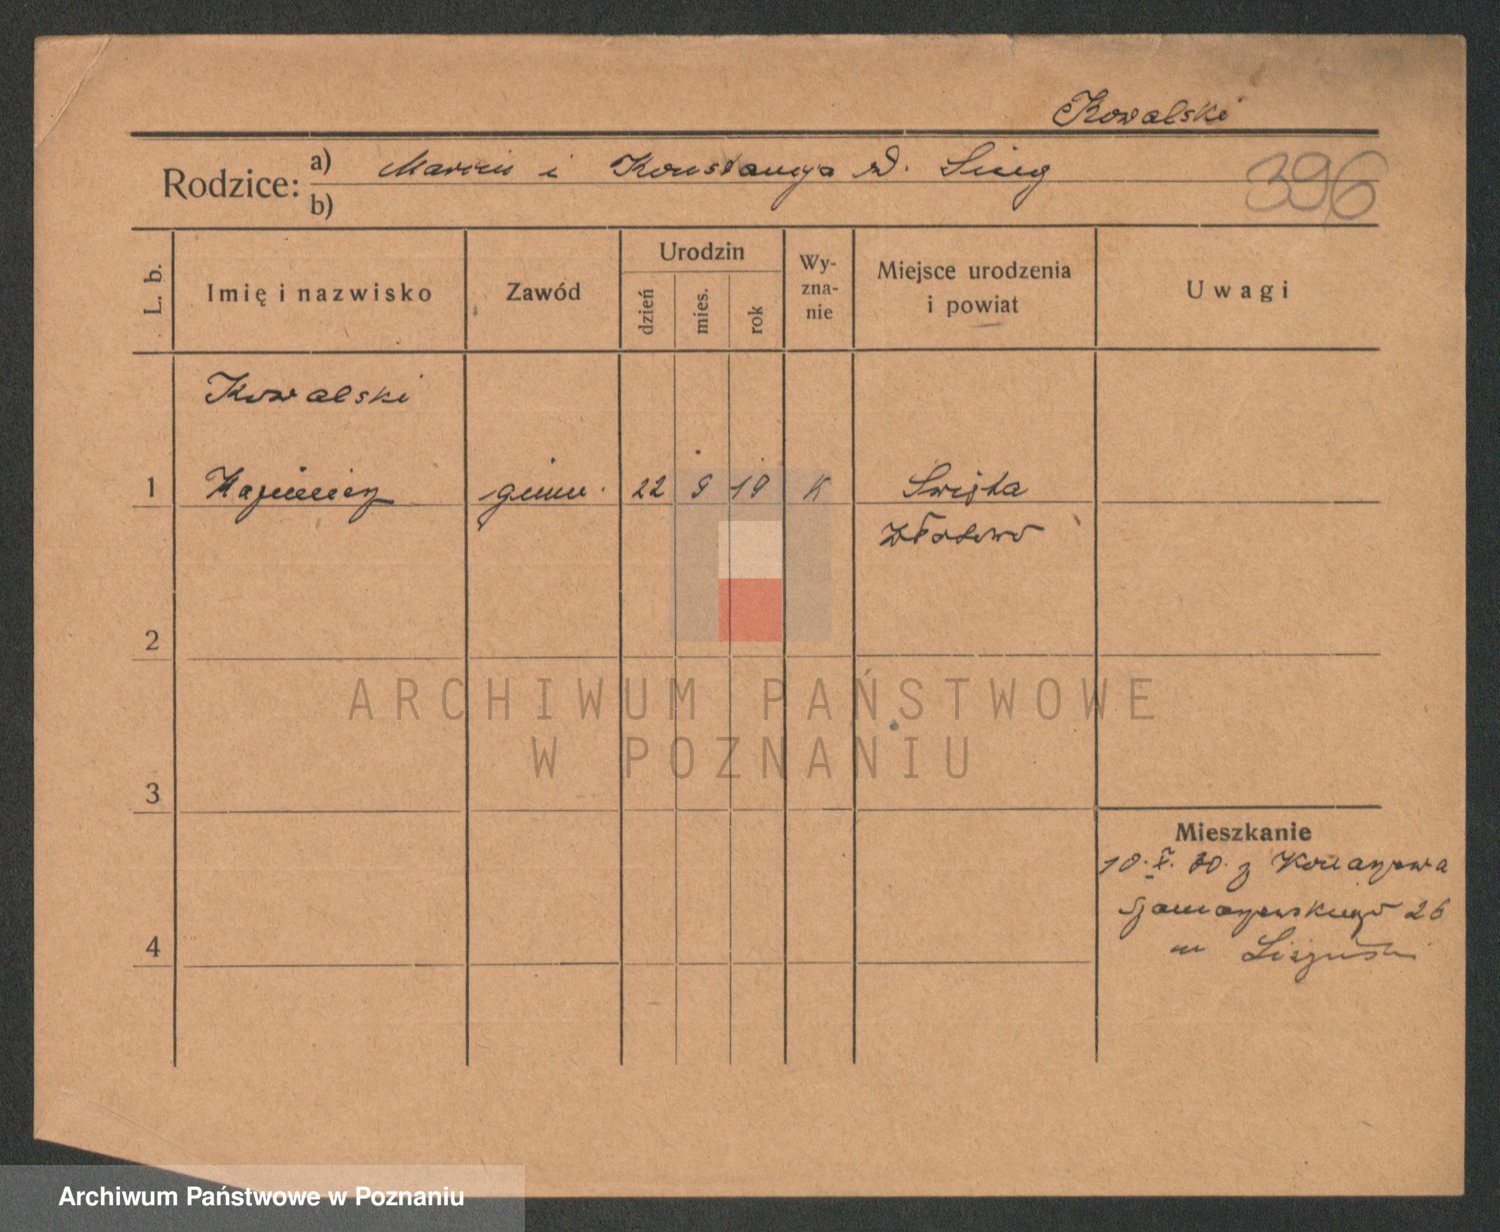 Kowalski
Rodzice: a) Marcin i Konstancja d. Sieg
b)
396
L. b.
Imię i nazwisko
Zawód
Urodzin
dzień
mies.
rok
Wy-
zna-
nie
Miejsce urodzenia
i powiat
Uwagi
Kowalski
1 Kazimierz gimn. 22 9 19 K Święta
Złotowo
2
ARCHIWUM PAŃSTWOWE
W POZNANIU
3
Mieszkanie
10. X. 30. z
26
4
Archiwum Państwowe w Poznaniu